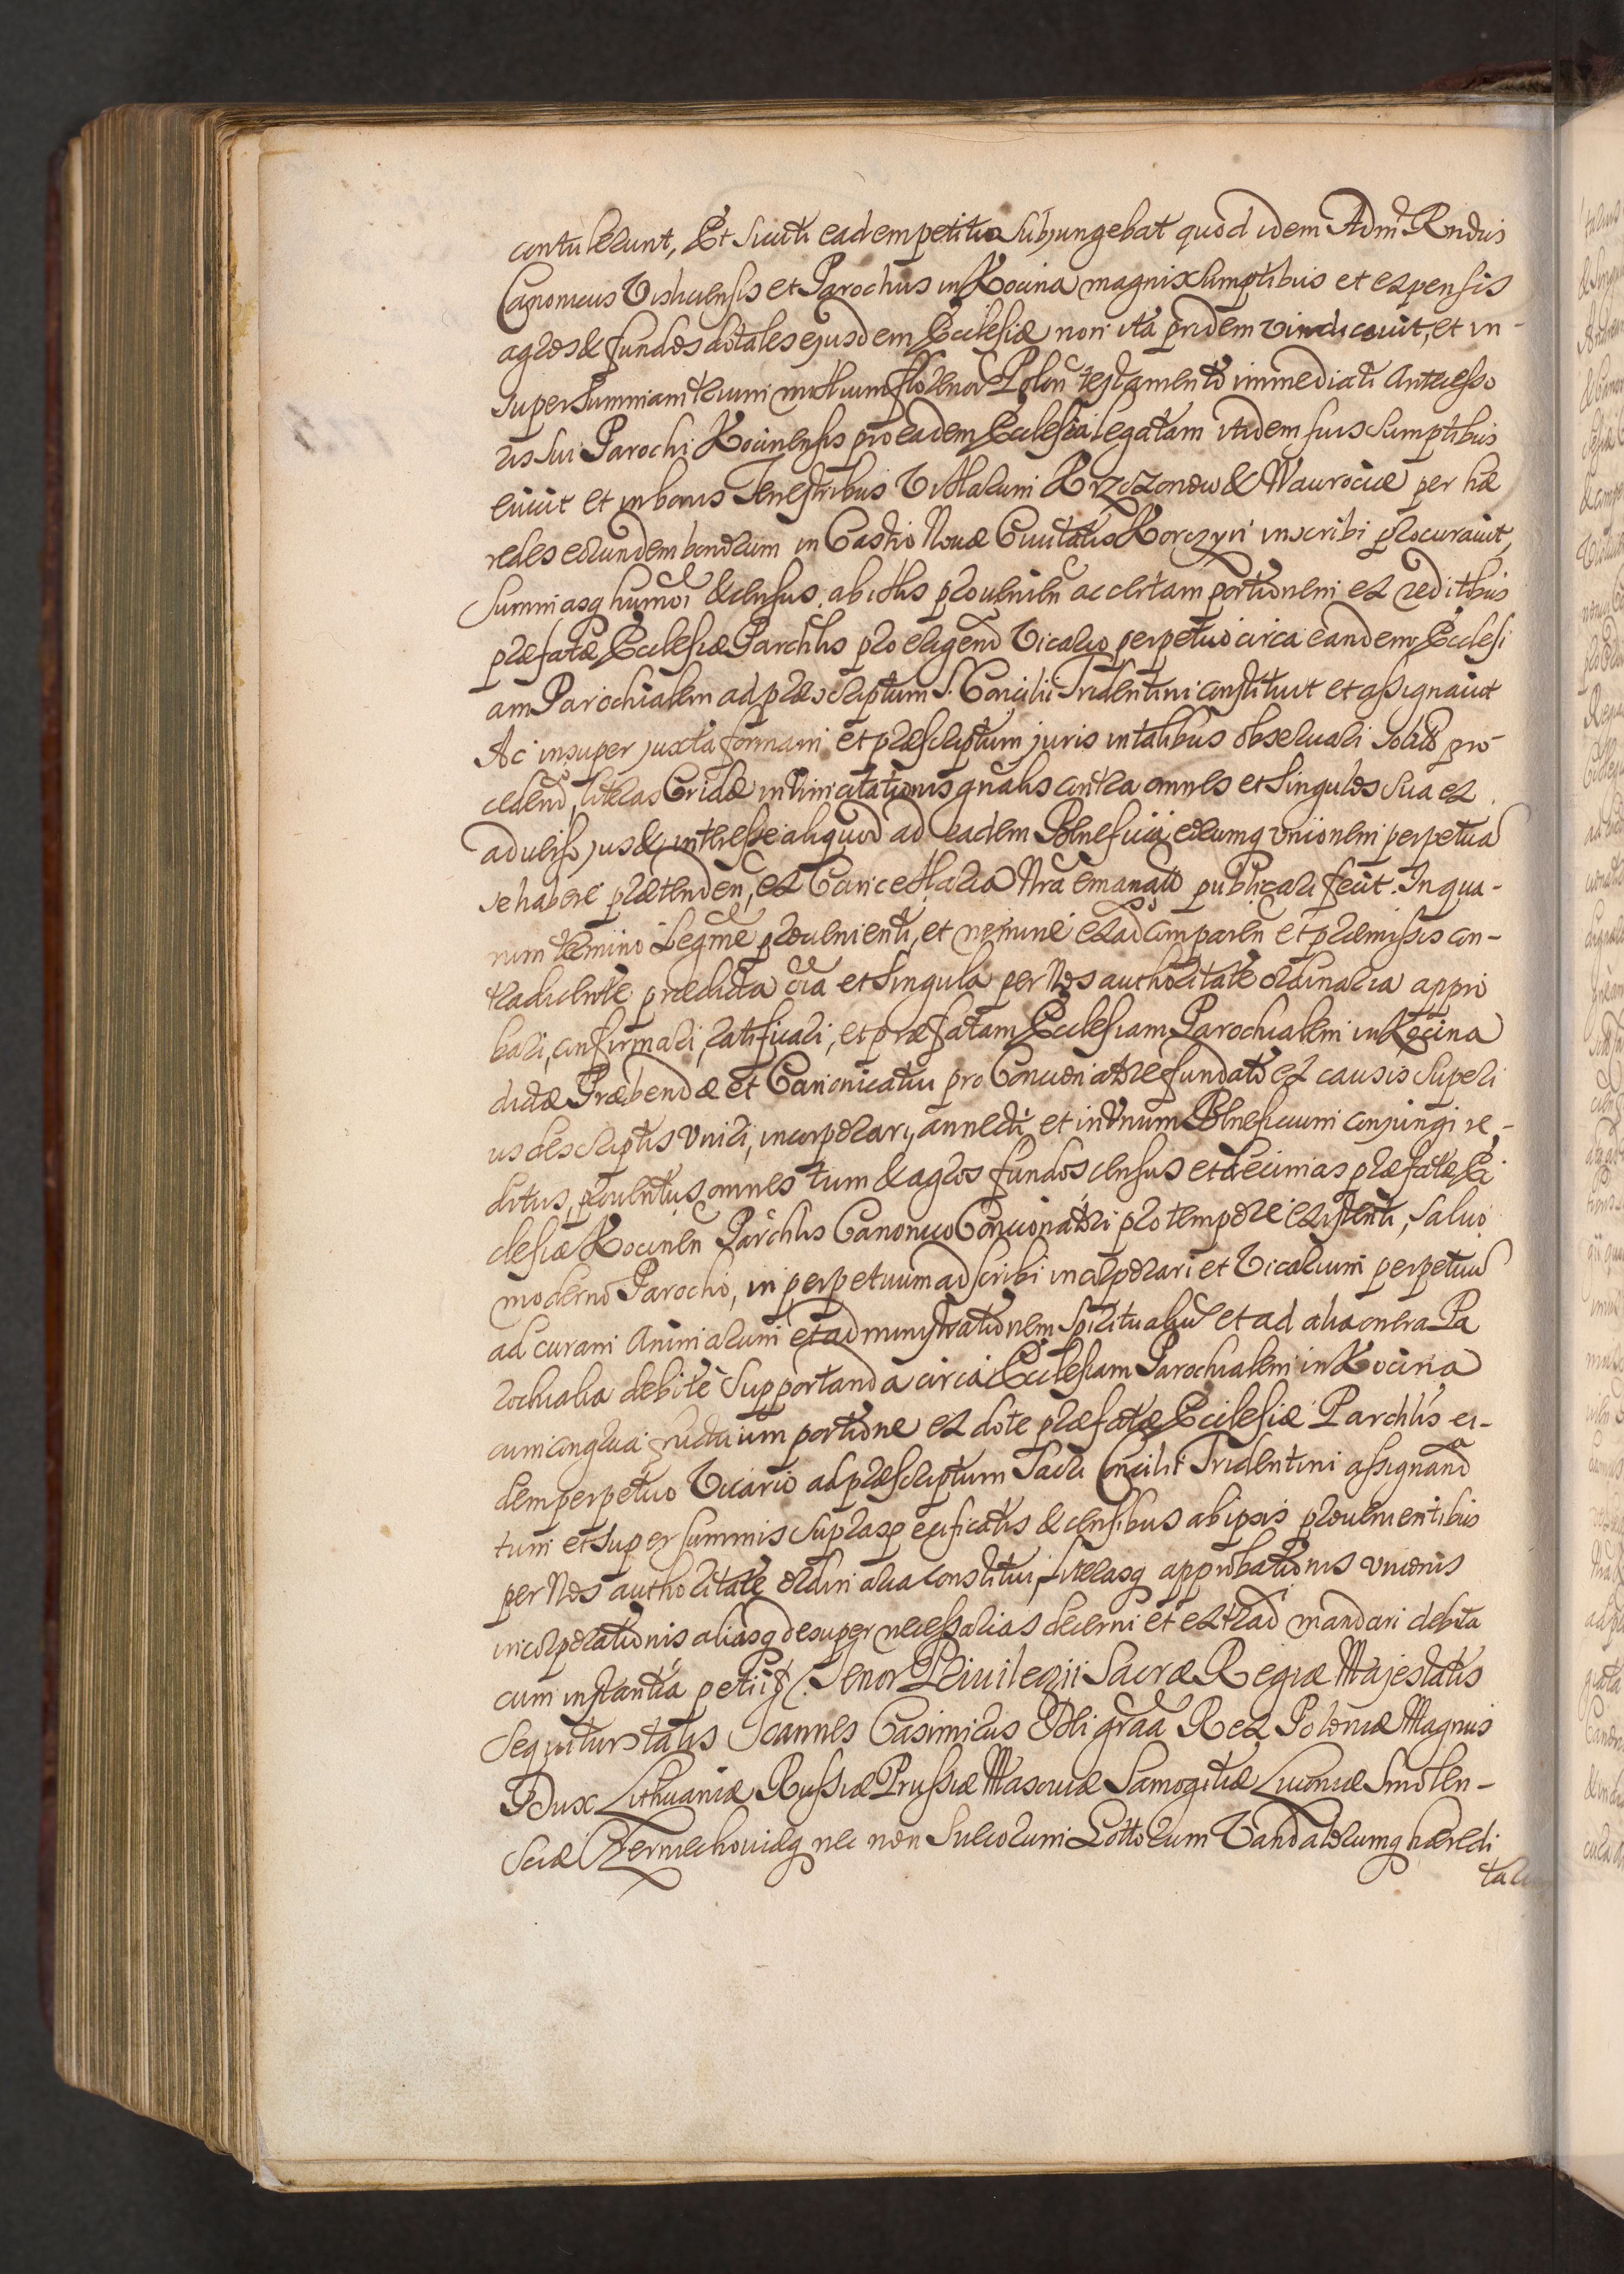 contulerunt, Et sicuti eadem petitio subjungebat quod idem Admd Rndus
Canonicus Visliciensis et Parochus in Kocina magnis sumptibus et expensis
agros & fundos dotales ejusdem Ecclesiæ non ita pridem vindicauit, et in-
super summam trium millium florenor Polon testamento immediati Antecesso
ris sui Parochi Kocinensis pro eadem Ecclesia legatam itidem suis sumptibus
euicit et in bonis Terrestribus Villarum Krzczonow & Wawrocice per hæ
redes eorundem bonorum in Castro Nouæ Ciuitatis Korczyn inscribi procurauit,
summasq humoi & census ab illis prouenien ac certam portionem ex reditibus
præfatæ Ecclesiæ Parchlis pro eligend Vicario perpetuo circa eandem Ecclesi
am Parochialem ad præscriptum S. Concilii Tridentini constituit et assignauit
Ac insuper juxta formam et præscriptum juris in talibus obseruari solito pro-
cedend, literas Cridæ in vim citationis gnalis contra omnes et singulos sua ex
aduerso jus & interesse aliquod ad eadem Beneficia eorumq unionem perpetua
se habere prætenden, ex Cancellaria Nra emanato publicari fecit. In qua-
rum termino Legme prouenienti, et nemine exad comparen et præmissis con-
tradicente prædicta oia et singula per Nos authoritate ordinaria appro
bari, confirmari, ratificari, et præfatam Ecclesiam Parochialem in Kocina
dictæ Præbendæ et Canonicatui pro Concionatore fundato ex causis superi
us descriptis vniri, incorporari, annecti, et in Vnum Beneficium conjungi re,-
ditus, prouentus omnes tum & agros fundos census et decimas præfatæ Ec
clesiæ Kocinen Parchlis Canonico Concionatori pro tempore existenti, saluo
moderno Parocho, in perpetuum adscribi incorporari et Vicarium perpetuu
ad curam Animarum et administrationem spiritualiu et ad alia onera Pa
rochialia debite supportanda circa Ecclesiam Parochialem in Kocina
cum congrua fructuum portione ex dote præfatæ Ecclesiæ Parchlis ei-
dem perpetuo Vicario ad præscriptum Sacri Concilii Tridentini assignand
tum et super summis supraspecificatis & censibus ab ipsis prouenientibus
per Nos authoritate ordinaria constitui, literasq approbationis vnionis
incorporationis aliasq desuper necessarias decerni et extrad mandari debita
cum instantia petiit. Tenor Priuilegii Sacræ Regiæ Majestatis
sequitur talis Joannes Casimirus Dei graa Rex Poloniæ Magnus
Dux Lithuaniæ Russiæ Prussiæ Masouiæ Samogitiæ Liuoniæ Smolen-
sciæ Czerniechouiæq nec non Suecorum Gottorum Vandalorumq hæredi